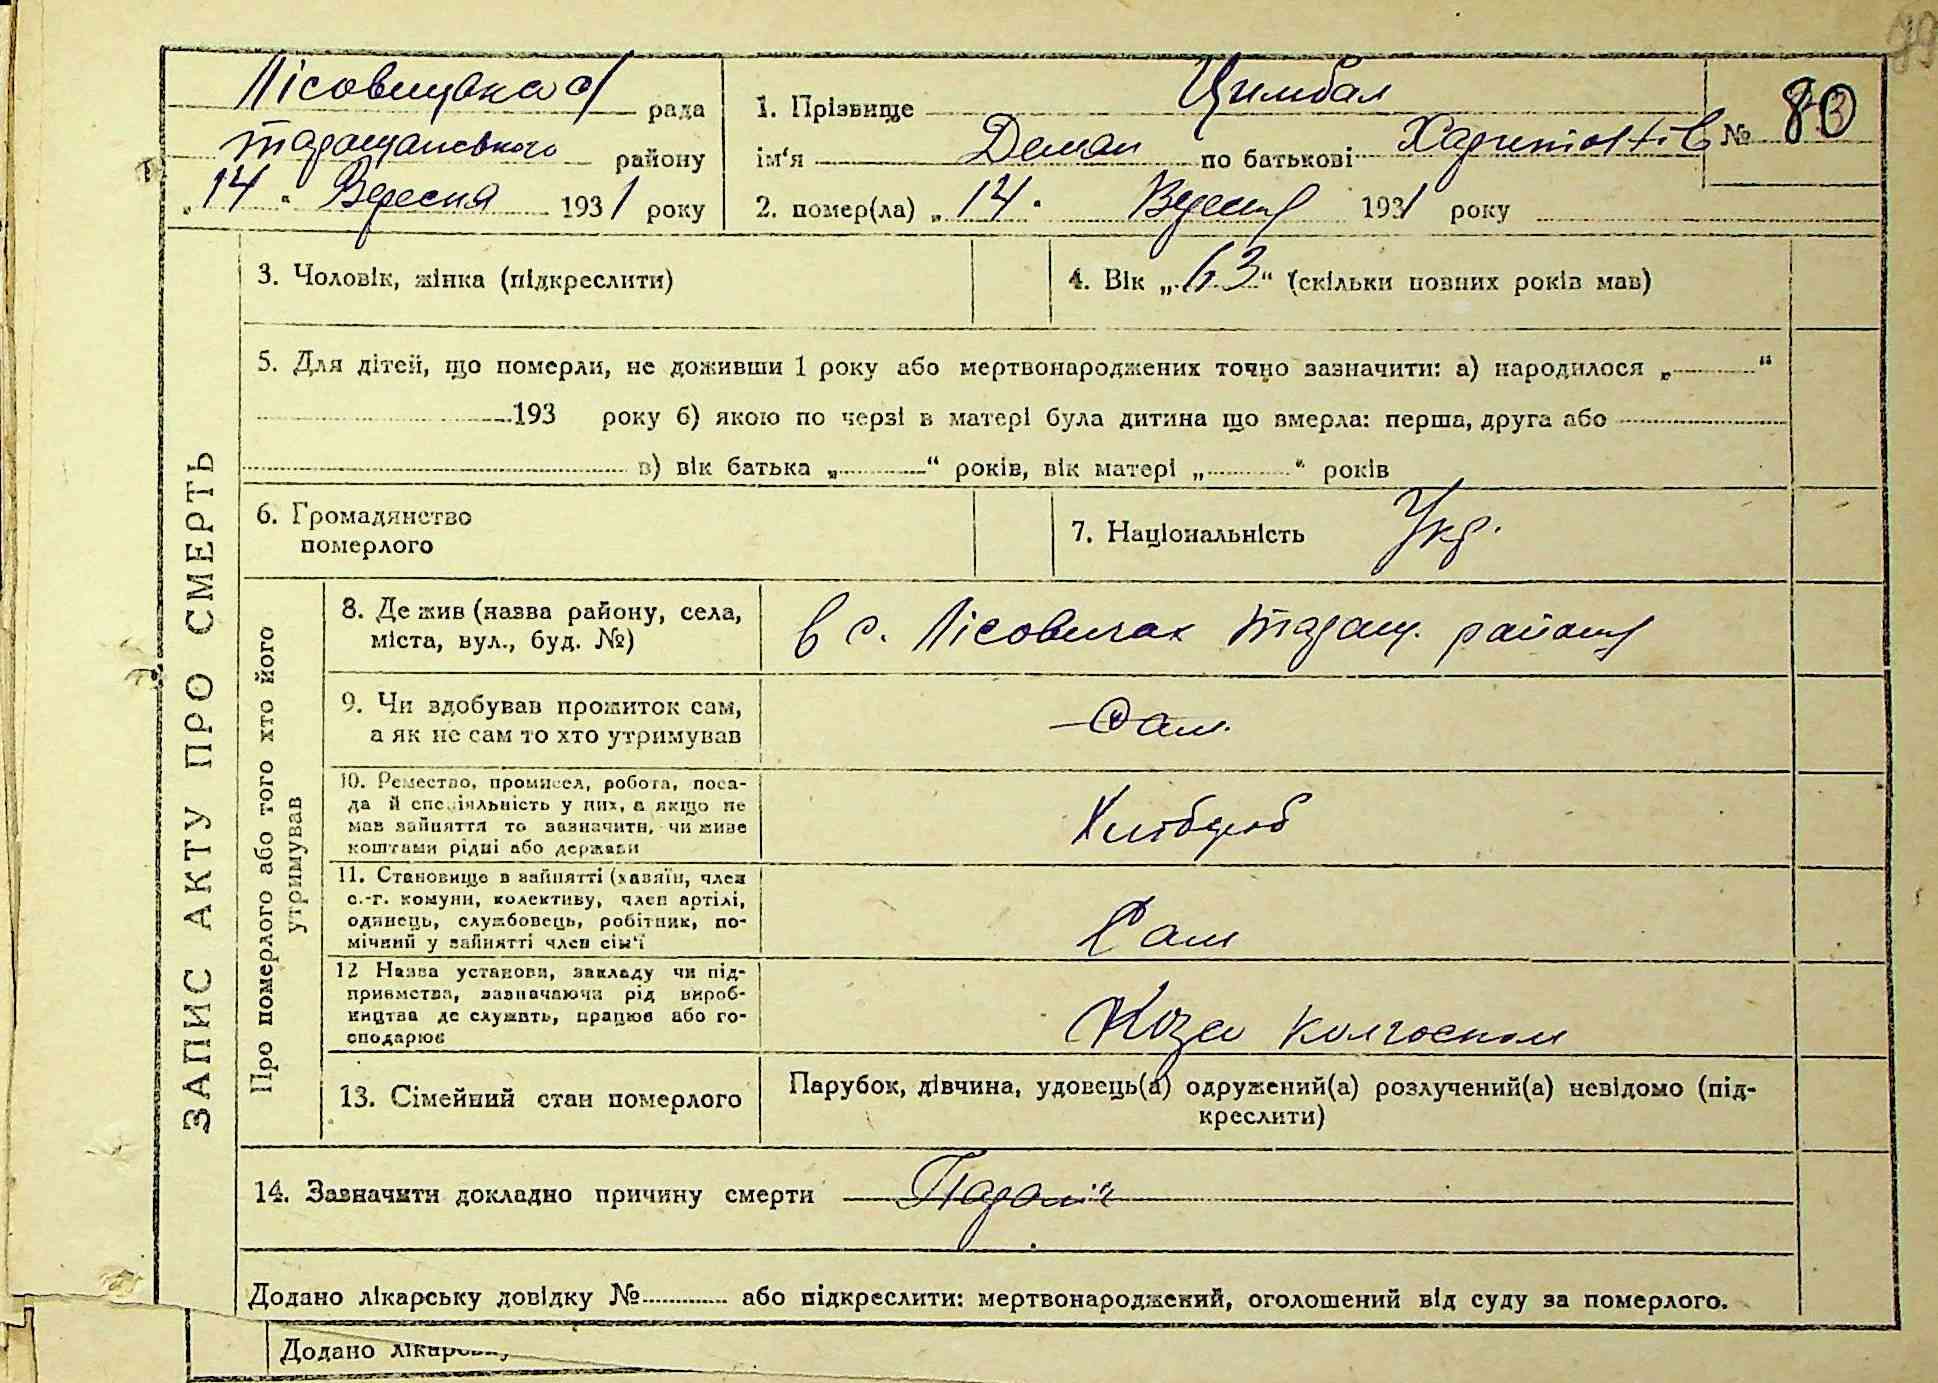 99
Лісовицька с/ рада
Таращанського району
„14“ Вересня 1931 року
1. Прізвище Цимбал
ім‘я Демян по батькові Харитонів
№ 80
2. помер(ла) „14“ Вересня 1931 року
ЗАПИС АКТУ ПРО СМЕРТЬ
3. Чоловік, жінка (підкреслити)
4. Вік „63“ (скільки повних років мав)
5. Для дітей, що померли, не доживши 1 року або мертвонароджених точно зазначити: а) народилося „ “
193 року б) якою по черзі в матері була дитина що вмерла: перша, друга або
в) вік батька „ “ років, вік матері „ “ років
6. Громадянство
померлого
7. Національність Укр.
Про померлого або того хто його
утримував
8. Де жив (назва району, села,
міста, вул., буд. №)
в с. Лісовичах Таращ. району
9. Чи здобував прожиток сам,
а як не сам то хто утримував
Сам.
10. Ремество, промисел, робота, поса-
да й спеціяльність у них, а якщо не
мав зайняття то зазначити, чи живе
коштами рідні або держави
Хлібороб
11. Становище в зайнятті (хазяїн, член
с.-г. комуни, колективу, член артілі,
одинець, службовець, робітник, по-
мічний у зайнятті член сім‘ї
Сам
12 Назва установи, закладу чи під-
приємства, зазначаючи рід вироб-
ництва де служить, працює або го-
сподарює
колгоспом
13. Сімейний стан померлого
Парубок, дівчина, удовець(а) одружений(а) розлучений(а) невідомо (під-
креслити)
14. Зазначити докладно причину смерти Параліч
Додано лікарську довідку № або підкреслити: мертвонароджений, оголошений від суду за померлого.
Додано